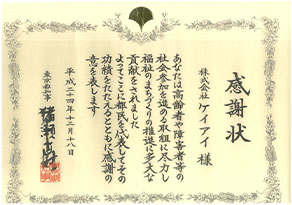 感謝状
株式会社ケイアイ 様
あなたは高齢者や障害者等の
社会参加を進める取組に尽力し
福祉のまちづくりの推進に多大な
貢献をされました
よってここに都民を代表してその
功績をたたえるとともに感謝の
意を表します
平成二十四年十二月十八日
東京都知事
猪瀬直樹